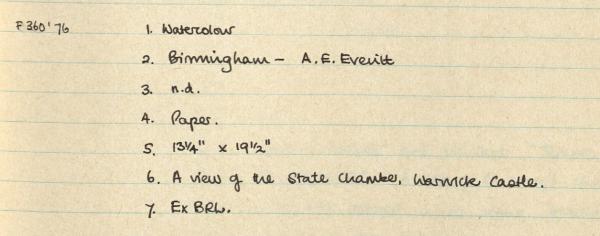 F360'76 1. Watercolour
2. Birmingham - A.E. Everitt
3. n.d.
4. Paper.
5. 13¼" x 19½"
6. A view of the State Chamber, Warwick Castle.
7. Ex BRL.